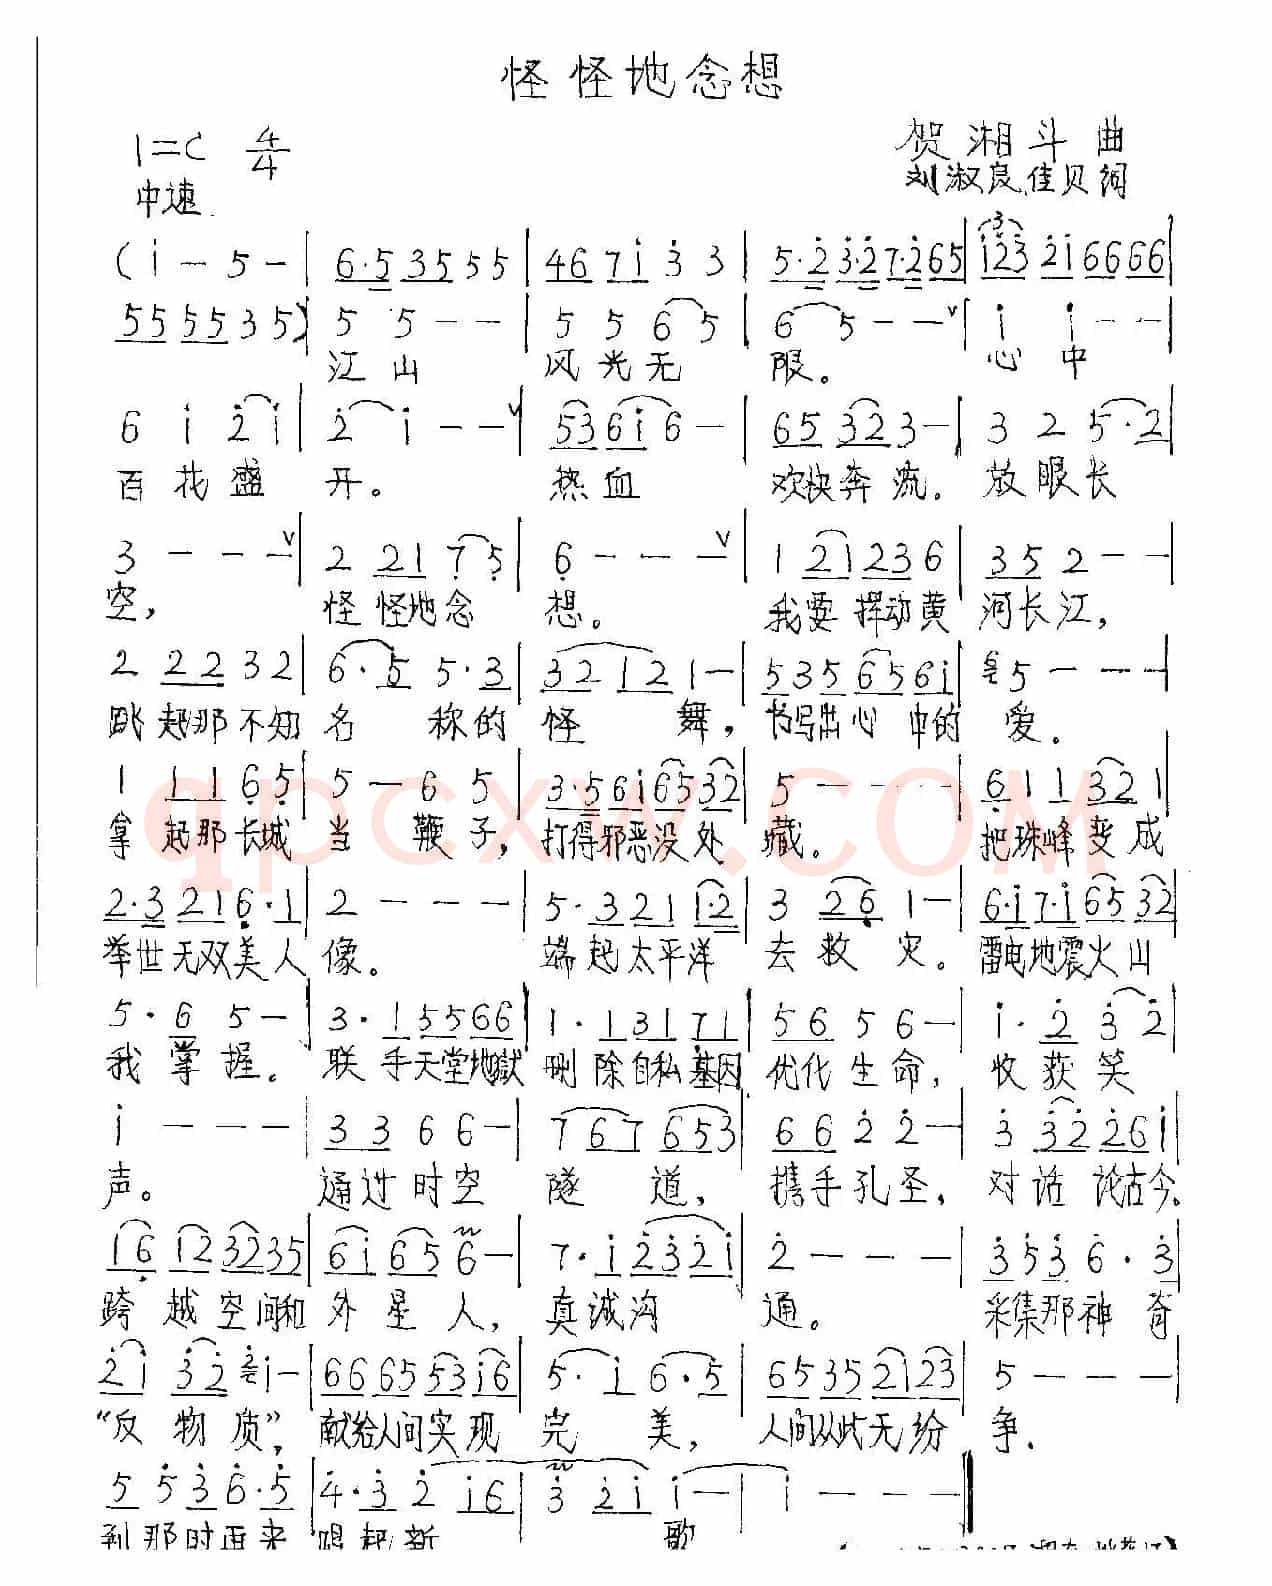 怪怪地念想
1=C 4/4
贺湘斗曲
中速
刘淑良、佳贝词
(i — 5 — | 6·5 35 5 5 | 46 7i 3 3 | 5·2 3·2 7·2 65 | i23 2i 66 66 |
55 55 3 5) | 5 5 — — | 5 5 6 5 | 6 5 — — | i i — — |
江山 风光无 限。 心中
6 i 2 i | 2 i — — | 53 6i 6 — | 65 32 3 — | 3 2 5·2 |
百花盛 开。 热血 欢快奔流。 放眼长
3 — — — | 2 21 7 5 | 6 — — — | 1 21 23 6 | 35 2 — — |
空, 怪怪地念 想。 我要挥动黄 河长江,
2 22 3 2 | 6·5 5·3 | 32 12 1 — | 535 65 6i | 5 — — — |
跳起那不知 名称的 怪舞, 书写出心中的 爱。
1 11 6 5 | 5 — 6 5 | 3·5 6i 65 32 | 5 — — — | 61 1 32 1 |
拿起那长城 当鞭子, 打得邪恶没处 藏。 把珠峰变成
2·3 21 6·1 | 2 — — — | 5·3 21 1·2 | 3 26 1 — | 6·i 7·i 65 32 |
举世无双美人 像。 端起太平洋 去救灾。 雷电地震火山
5·6 5 — | 3·1 55 66 | 1·1 31 71 | 56 5 6 — | i·2 3 2 |
我掌握。 联手天堂地獄 删除自私基因 优化生命, 收获笑
i — — — | 33 6 6 — | 767 653 | 66 2 2 — | 3 32 26 i |
声。 通过时空 隧道, 携手孔圣, 对话论古今。
16 12 32 35 | 6i 65 6 — | 7·i 23 2i | 2 — — — | 3 53 6·3 |
跨越空间和 外星人, 真诚沟 通。 采集那神奇
2i 32 i — | 66 65 53 i6 | 5·i 6·5 | 65 35 21 23 | 5 — — — |
“反物质”, 献给人间实现 完美, 人间从此无纷 争.
5 53 6·5 | 4·3 2 i6 | 3 2i i — | i — — — |
到那时再来 唱起新 歌
qpcxw.com